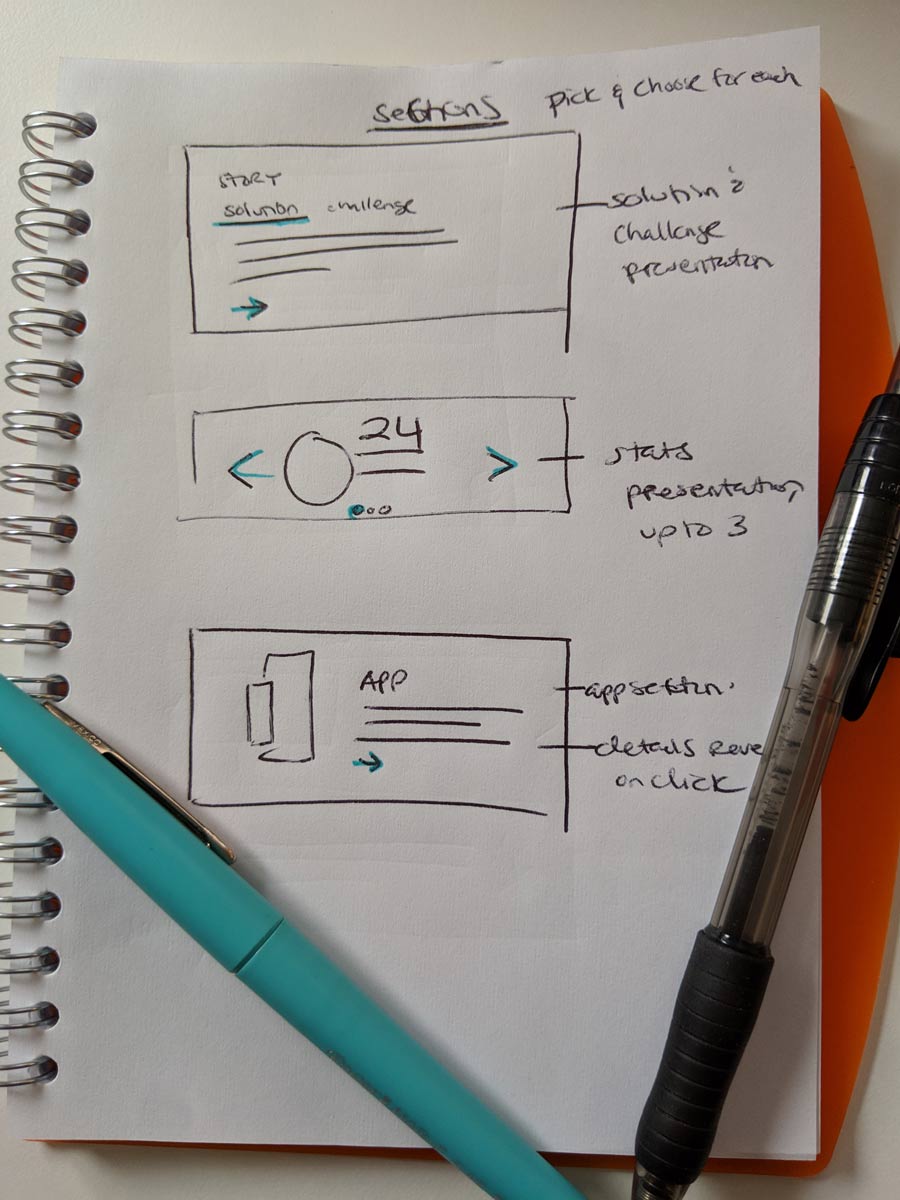 sections
pick & choose for each
STORY
solution challenge
solution &
challenge
presentation
24
stats
presentation,
up to 3
APP
app section.
details reve
on click